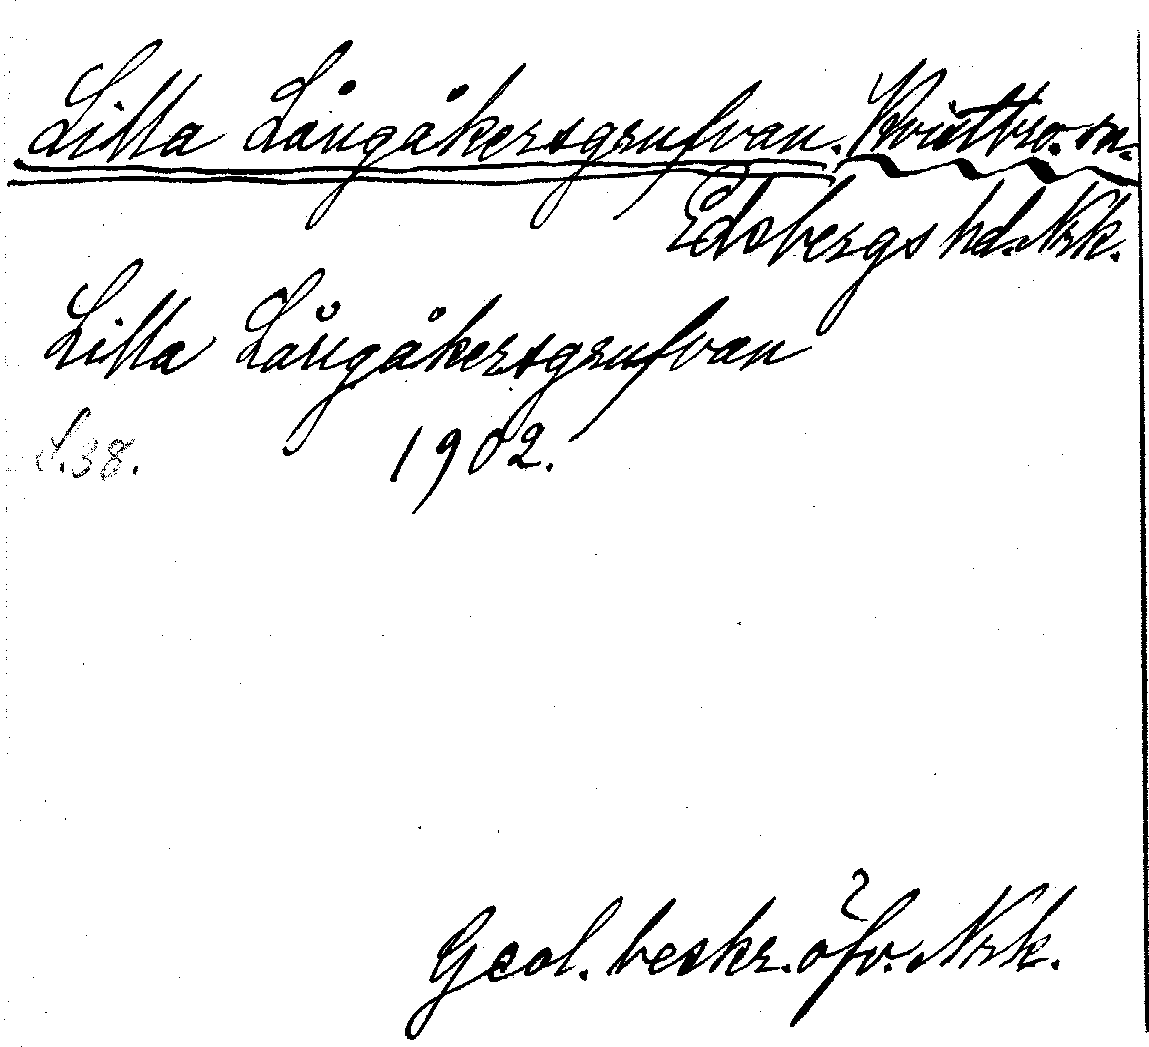 Lilla Långåkersgrufvan. Kvistbro. sn.
Edsbergs hd. Nrk.
Lilla Långåkersgrufvan
S.38. 1902.
Geol. beskr. öfv. Nrk.